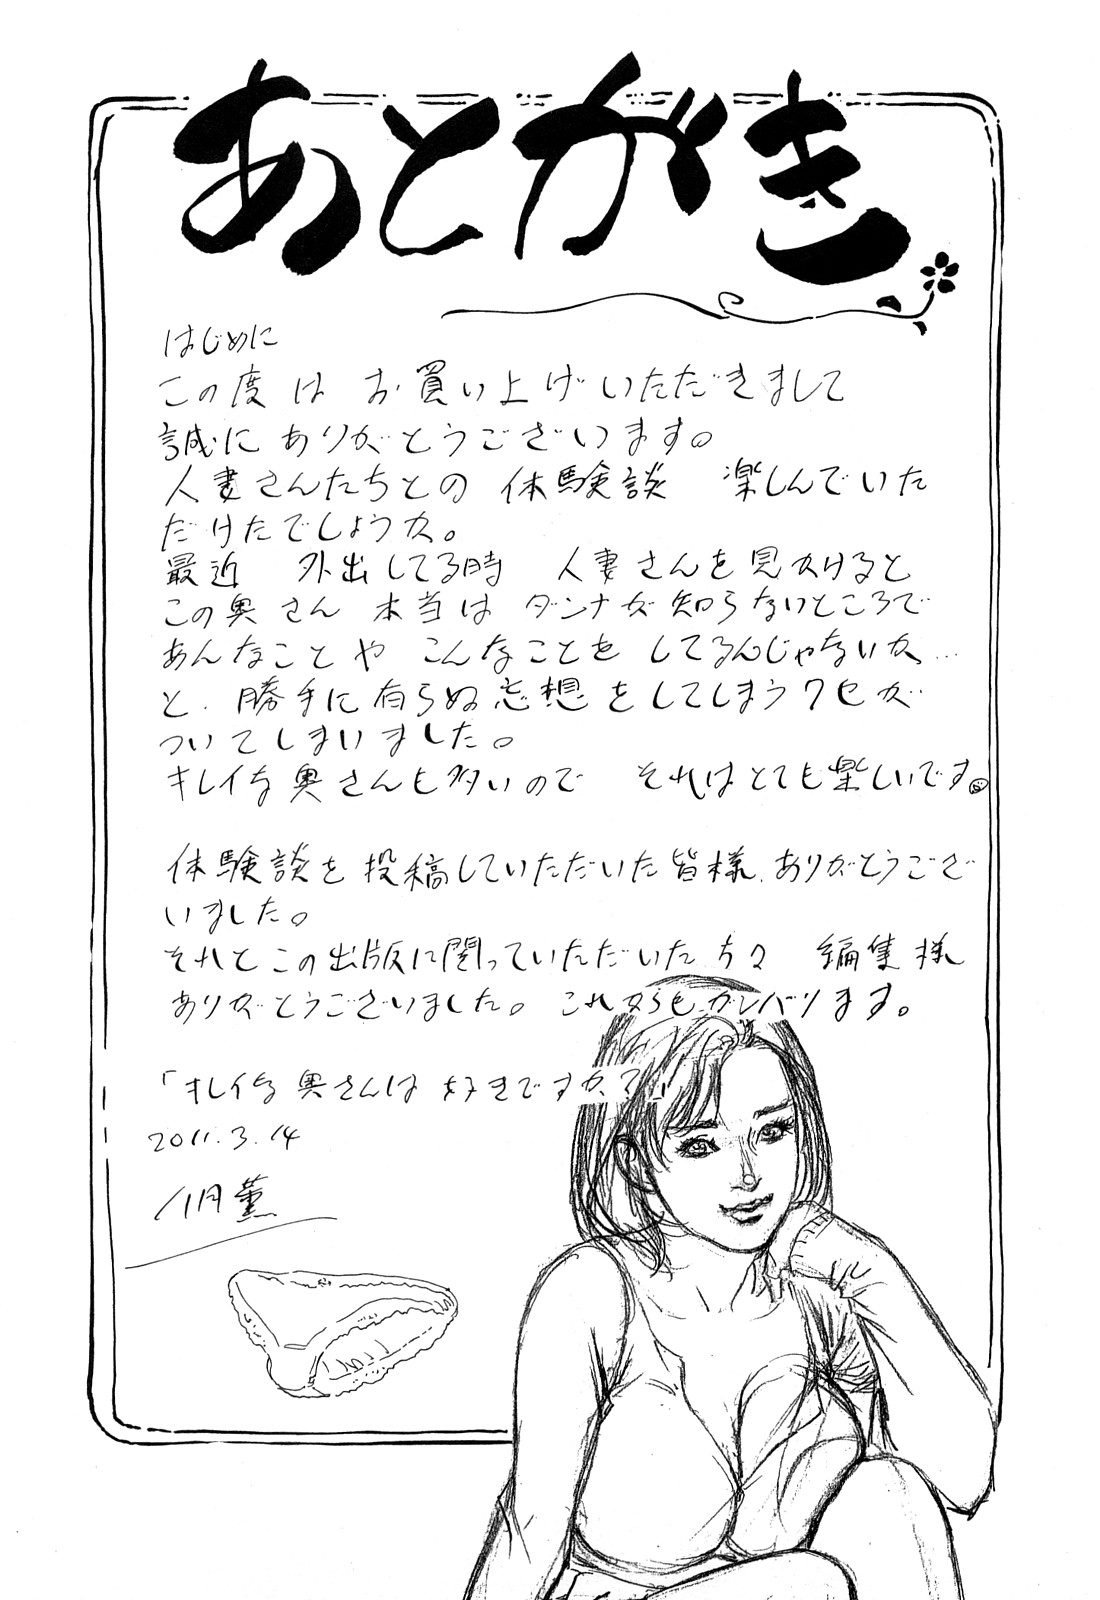 あとがき
はじめに
この度は お買い上げいただきまして
誠に ありがとうございます。
人妻さんたちとの 体験談 楽しんでいた
だけたでしょうか。
最近 外出してる時 人妻さんを見かけると
この奥さん 本当は ダンナが知らないところで
あんなことや こんなことを してるんじゃないか…
と、勝手に有らぬ忘想をしてしまうクセが
ついてしまいました。
キレイな奥さんも多いので それはとても楽しいです。
体験談を投稿していただいた皆様、ありがとうござ
いました。
それとこの出版に関っていただいた方々 編集様
ありがとうございました。これからもガンバります。
「キレイな奥さんは好きですか?」
2011.3.14
八月薫